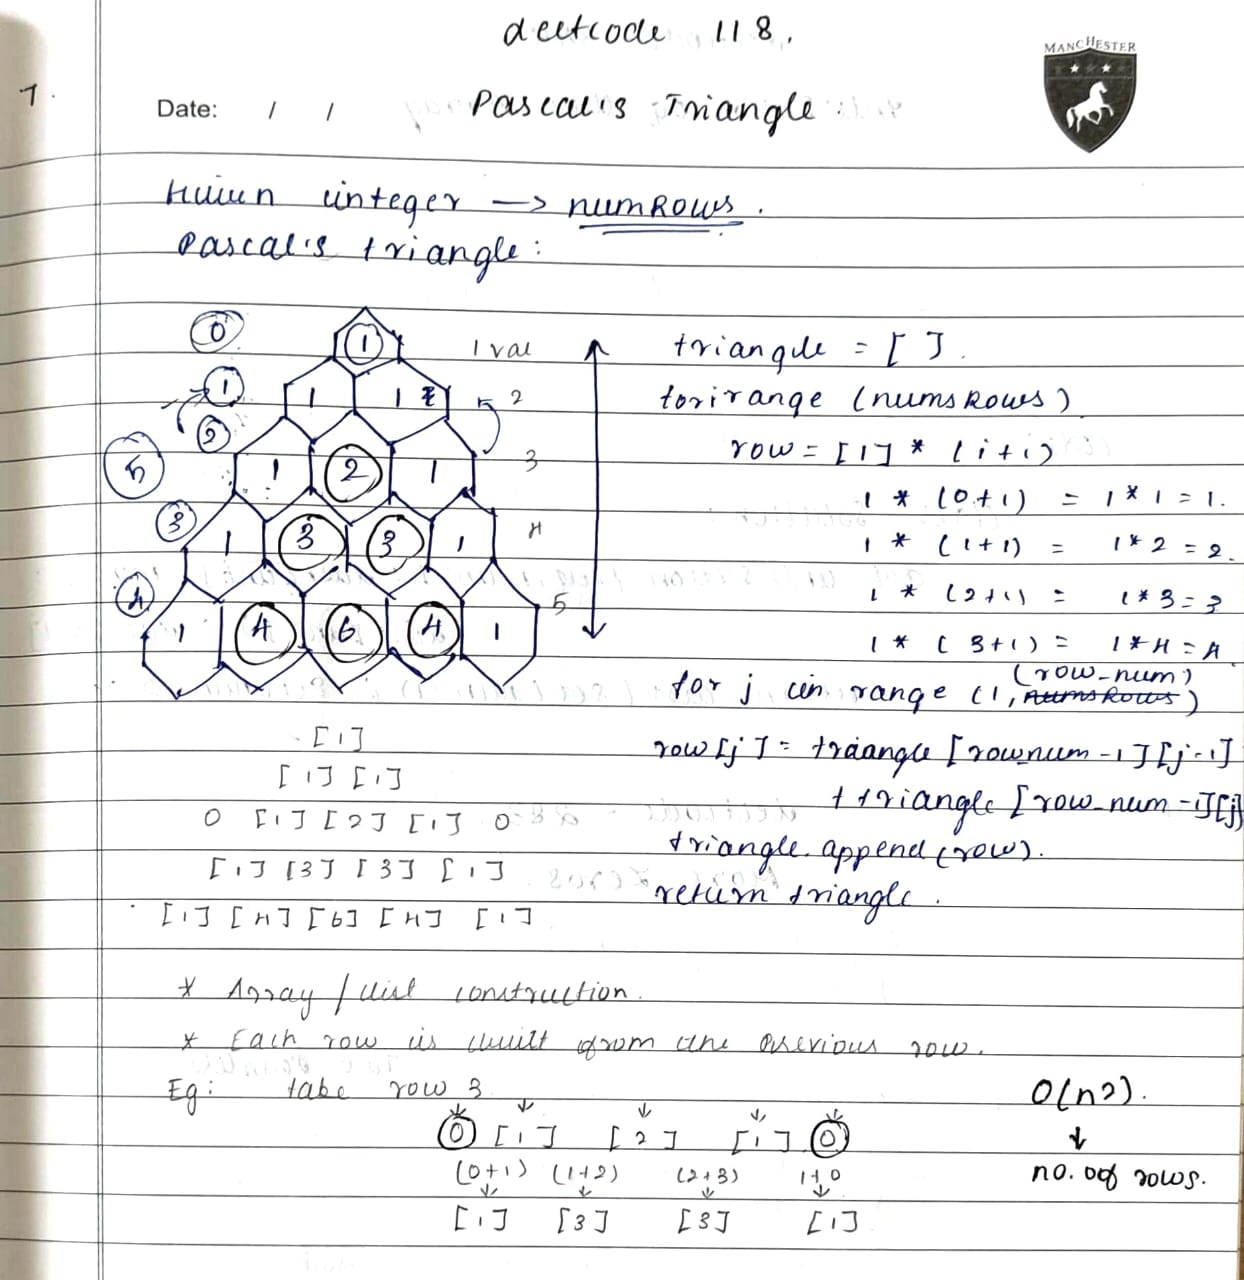 Leetcode 118.
MANCHESTER
7.
Date: / /
Pascal's Triangle:
Given integer -> numRows.
Pascal's triangle:
0
1
1 val
1
1
1
2
2
1
2
1
3
5
3
1
3
3
1
4
4
1
4
6
4
1
5
triangle = [ ].
for i range (numsRows)
row = [1] * (i+1)
1 * (0+1) = 1*1 = 1.
1 * (1+1) = 1*2 = 2.
1 * (2+1) = 1*3 = 3
1 * (3+1) = 1*4 = 4
(row_num)
for j in range (1, numsRows)
row[j] = triangle [rownum-1][j-1]
+ triangle [row_num-1][j]
triangle.append(row).
return triangle.
[1]
[1] [1]
0 [1] [2] [1] 0
[1] [3] [3] [1]
[1] [4] [6] [4] [1]
* Array / list construction.
* Each row is built from the previous row.
Eg: take row 3
0 [1] [2] [1] 0
(0+1) (1+2) (2+3) 1+0
[1] [3] [3] [1]
O(n2).
↓
no. of rows.